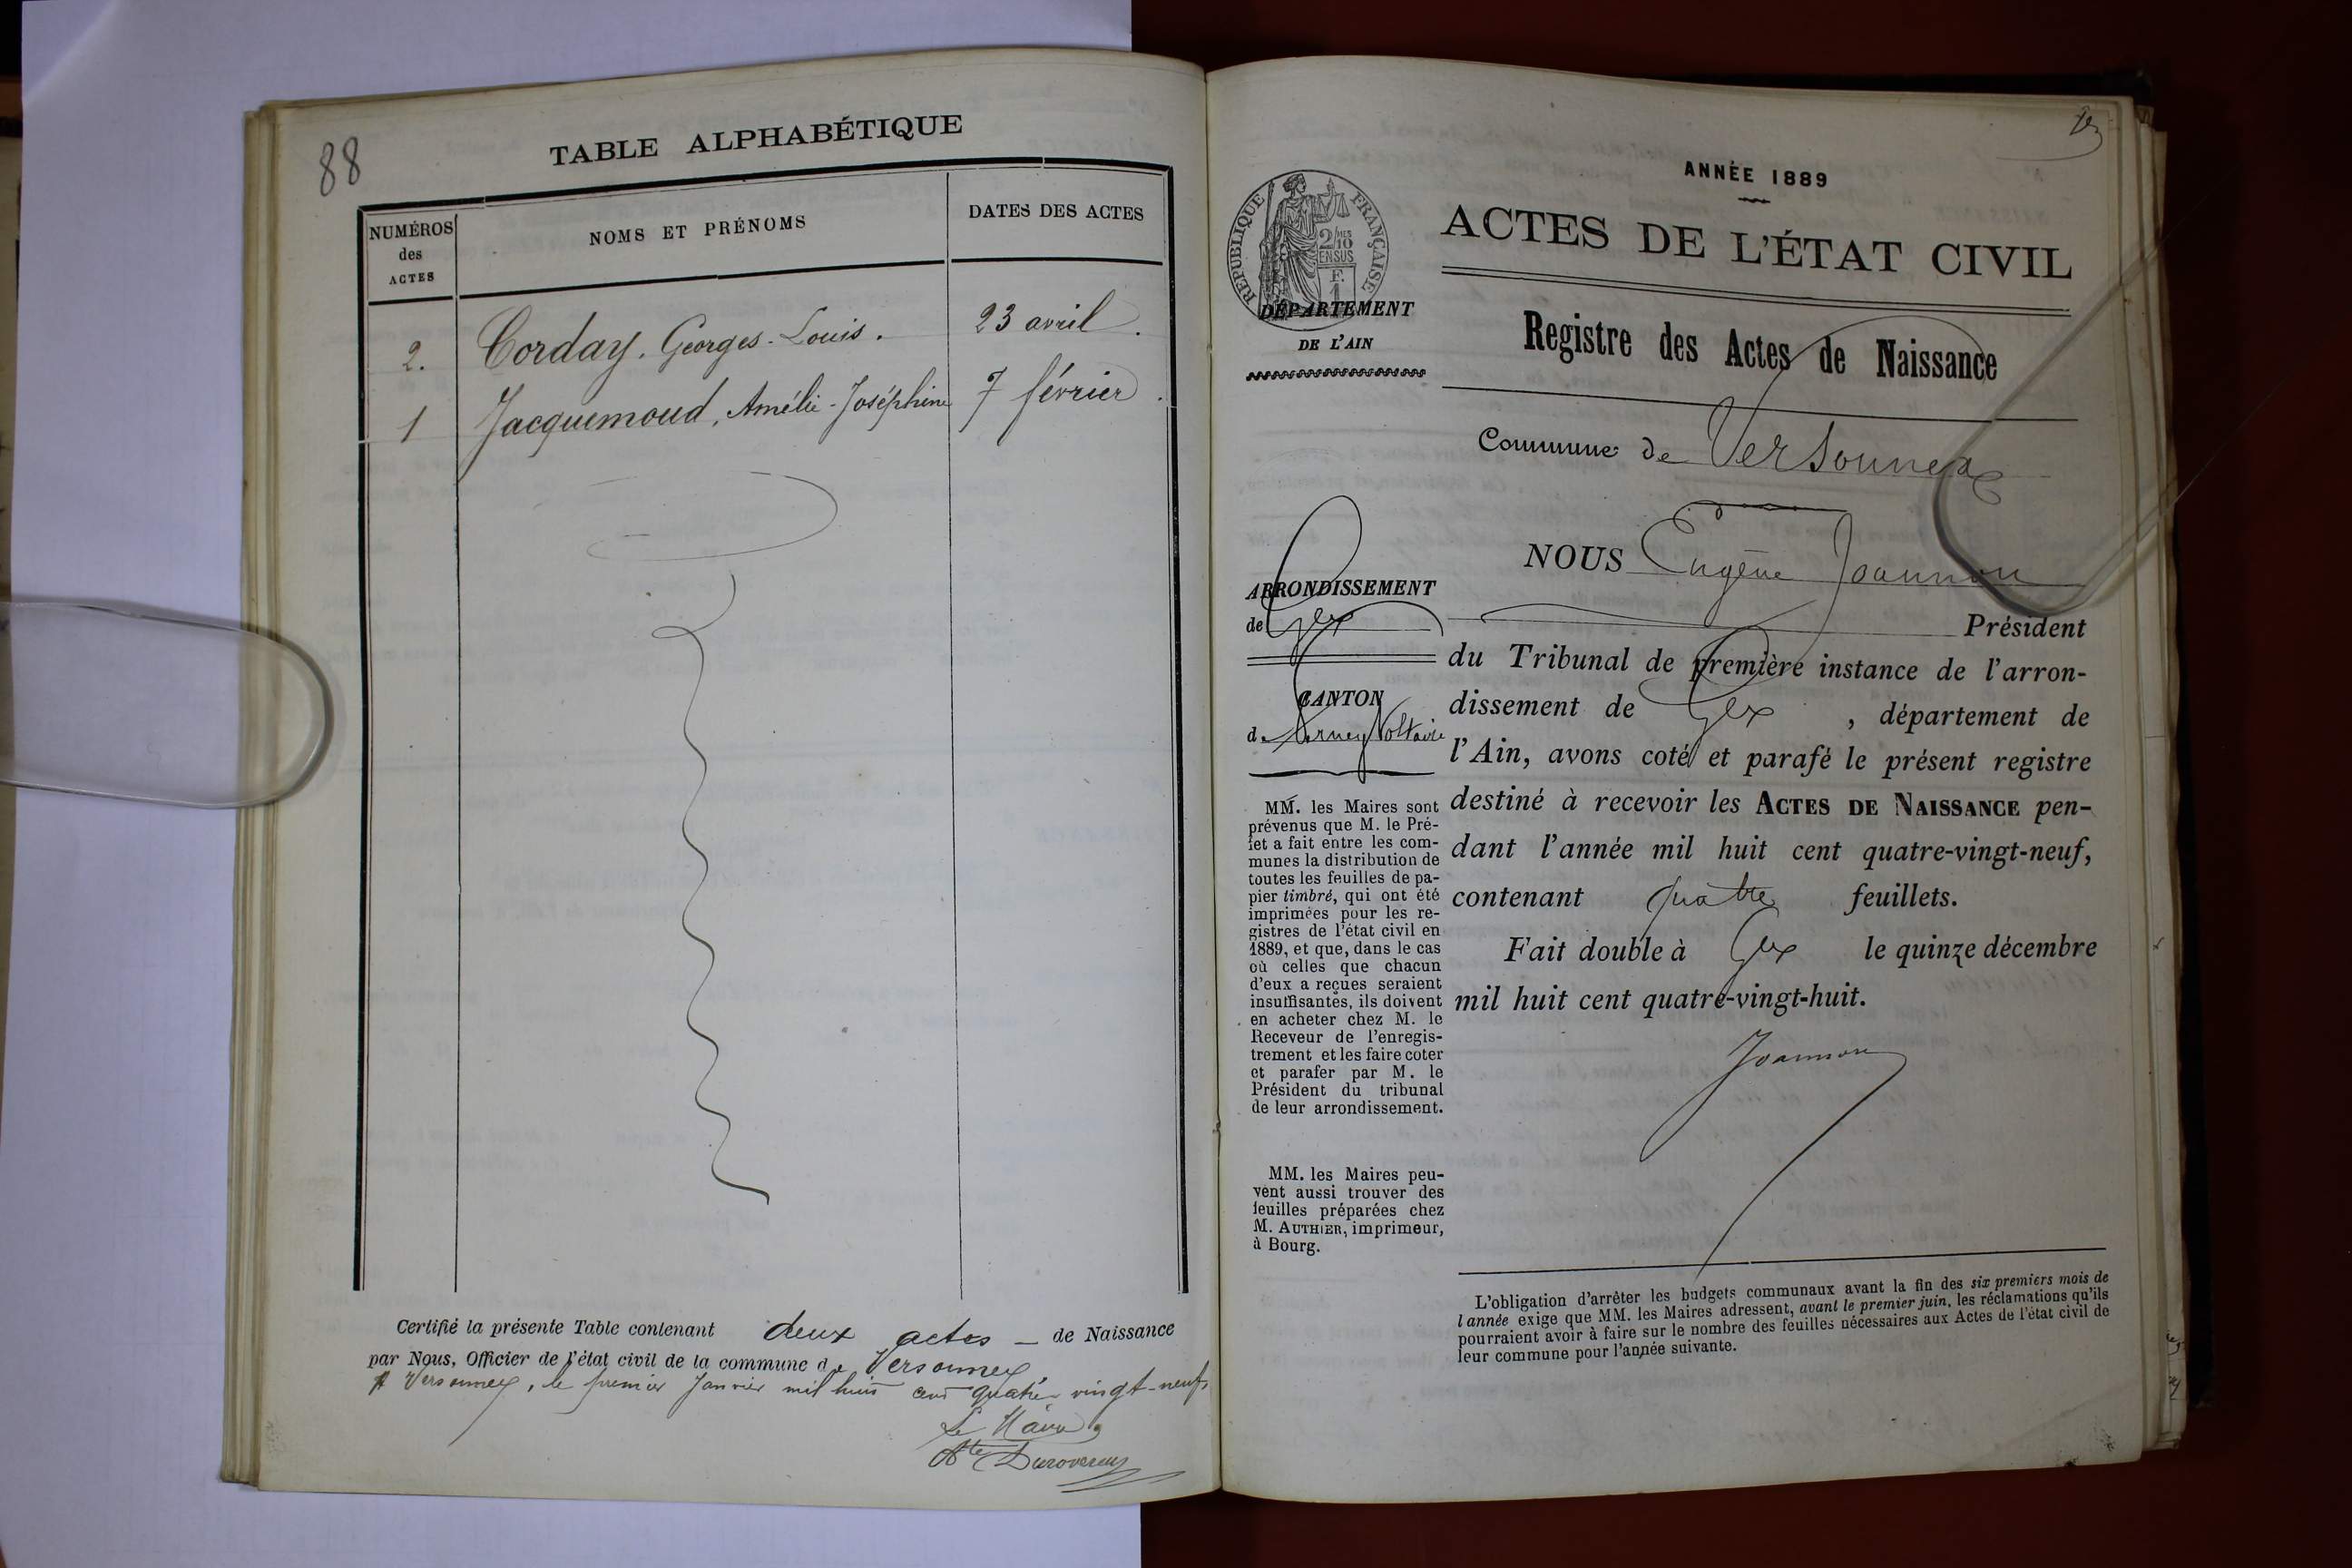 88
TABLE ALPHABÉTIQUE
NUMÉROS
des
ACTES
NOMS ET PRÉNOMS
DATES DES ACTES
2. Corday, Georges-Louis. 23 avril.
1 Jacquemoud, Amélie-Joséphine 7 février.
Certifié la présente Table contenant deux actes — de Naissance
par Nous, Officier de l'état civil de la commune de Versonnex
A Versonnex, le premier Janvier mil huit cent quatre-vingt-neuf,
Le Maire,
ANNÉE 1889
ACTES DE L'ÉTAT CIVIL
RÉPUBLIQUE FRANÇAISE
2/10 MES
EN SUS
F.
1
DÉPARTEMENT
DE L'AIN
Registre des Actes de Naissance
Commune de Versonnex
ARRONDISSEMENT
de Gex
CANTON
de Ferney Voltaire
MM. les Maires sont
prévenus que M. le Pré-
fet a fait entre les com-
munes la distribution de
toutes les feuilles de pa-
pier timbré, qui ont été
imprimées pour les re-
gistres de l'état civil en
1889, et que, dans le cas
où celles que chacun
d'eux a reçues seraient
insuffisantes, ils doivent
en acheter chez M. le
Receveur de l'enregis-
trement et les faire coter
et parafer par M. le
Président du tribunal
de leur arrondissement.
MM. les Maires peu-
vent aussi trouver des
feuilles préparées chez
M. AUTHIER, imprimeur,
à Bourg.
NOUS Eugène Joannon
Président
du Tribunal de première instance de l'arron-
dissement de Gex, département de
l'Ain, avons coté et parafé le présent registre
destiné à recevoir les ACTES DE NAISSANCE pen-
dant l'année mil huit cent quatre-vingt-neuf,
contenant quatre feuillets.
Fait double à Gex le quinze décembre
mil huit cent quatre-vingt-huit.
Joannon
L'obligation d'arrêter les budgets communaux avant la fin des six premiers mois de
l'année exige que MM. les Maires adressent, avant le premier juin, les réclamations qu'ils
pourraient avoir à faire sur le nombre des feuilles nécessaires aux Actes de l'état civil de
leur commune pour l'année suivante.